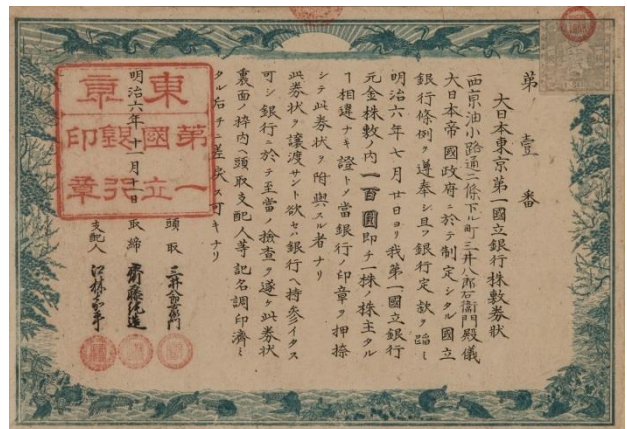 第壹番
大日本東京第一國立銀行株數券状
西京油小路通二條下ル町三井八郎右衛門殿儀
大日本帝國政府ニ於テ制定シタル國立
銀行條例ヲ遵奉シ且ツ銀行定款ヲ踏ミ
明治六年七月廿日ヨリ我第一國立銀行
元金株數ノ内一百圓即チ一株ノ株主タル
ヿ相違ナキ證トメ當銀行ノ印章ヲ押捺
シテ此券状ヲ附與スル者ナリ
此券状ヲ譲渡サント欲セハ銀行ヘ持參イタス
可シ銀行ニ於テ至當ノ撿査ヲ遂ケ此券状
裏面ノ枠内ヘ頭取支配人等記名調印濟ミ
タル 差戻ス可キナリ
明治六年十一月十一日
頭取 三井八郎右衛門
取締 齋藤純造
支配人
東京
第一
國立
銀行
印章